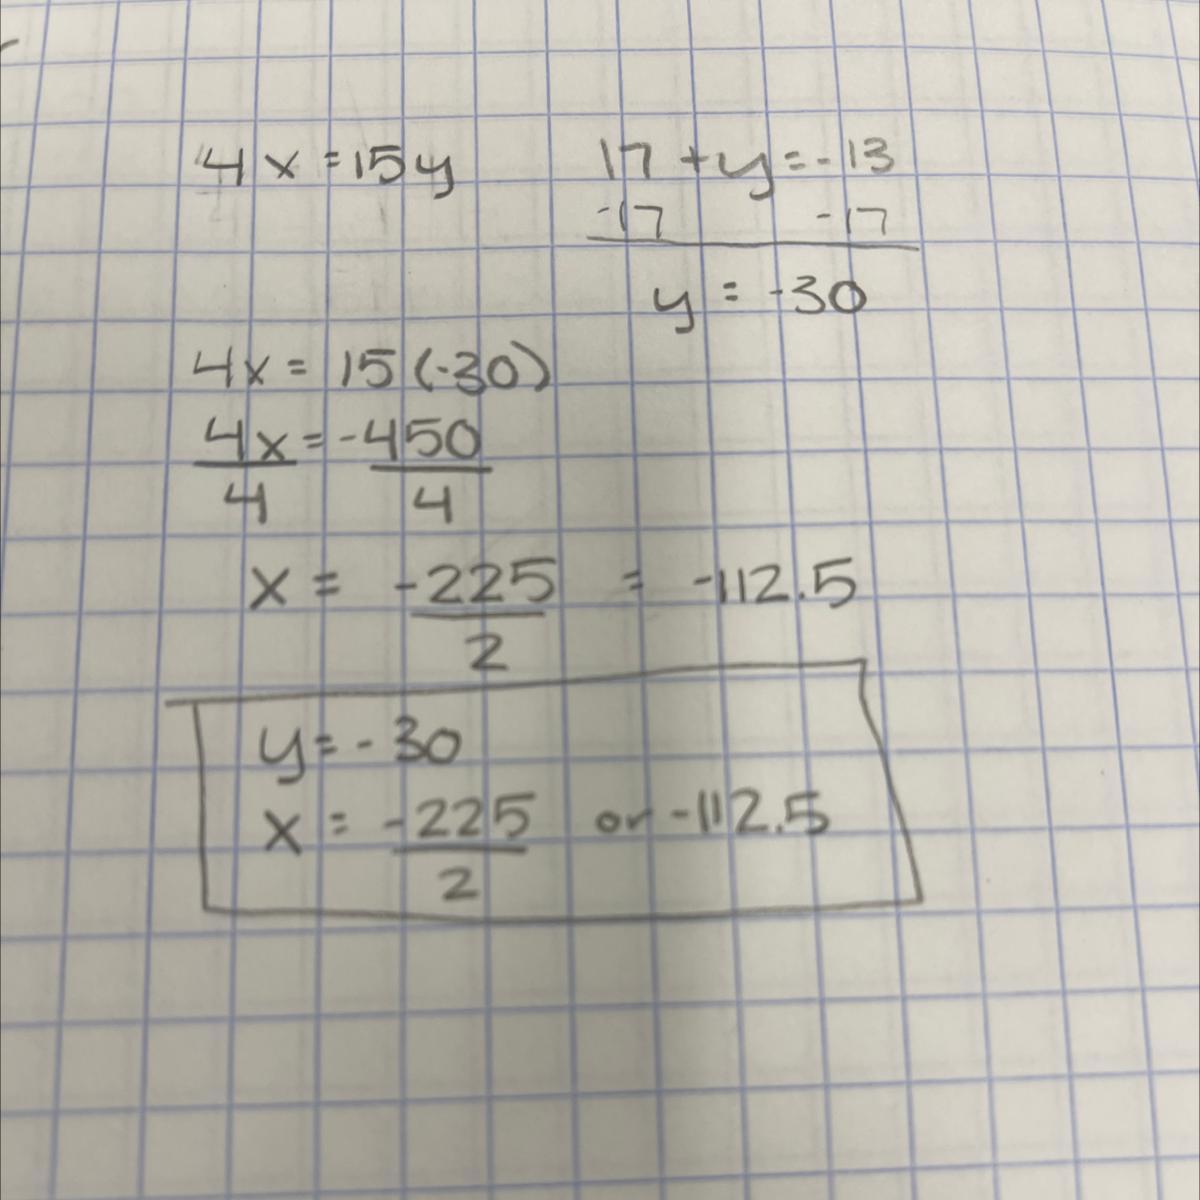 4x = 15y
17 + y = -13
-17 -17
y = -30
4x = 15(-30)
4x = -450
4 4
x = -225 = -112.5
2
y = -30
x = -225 or -112.5
2